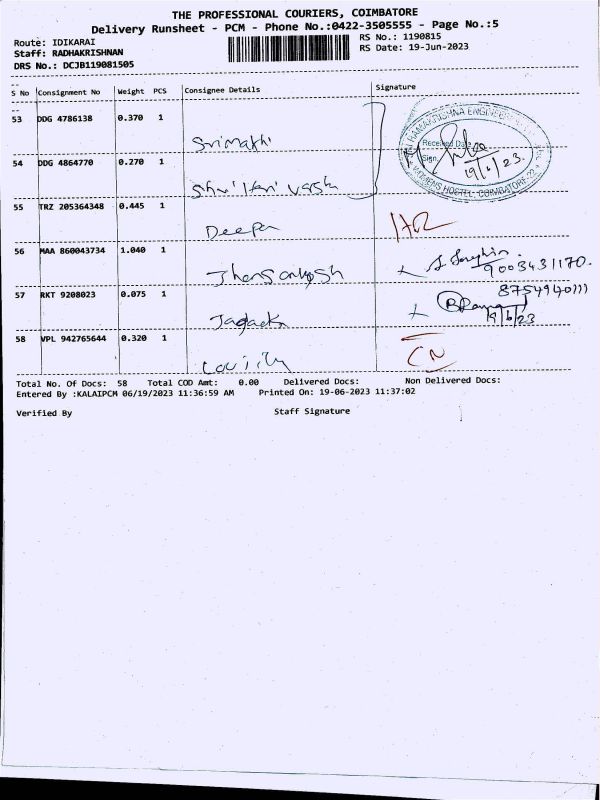 THE PROFESSIONAL COURIERS, COIMBATORE
Delivery Runsheet - PCM - Phone No.:0422-3505555 - Page No.:5
Route: IDIKARAI
RS No.: 1190815
Staff: RADHAKRISHNAN
RS Date: 19-Jun-2023
DRS No.: DCJB119081505
S No Consignment No Weight PCS Consignee Details Signature
53 DDG 4786138 0.370 1
Srimathi
Received Date
Sign.
19/6/23.
WOMENS HOSTEL COIMBATORE-22
54 DDG 4864770 0.270 1
Shri Hari
55 TRZ 205364348 0.445 1
Deepa
56 MAA 860043734 1.040 1
9003431170.
57 RKT 9208023 0.075 1
19/6/23
58 VPL 942765644 0.320 1
Total No. Of Docs: 58 Total COD Amt: 0.00 Delivered Docs: Non Delivered Docs:
Entered By :KALAIPCM 06/19/2023 11:36:59 AM Printed On: 19-06-2023 11:37:02
Verified By Staff Signature